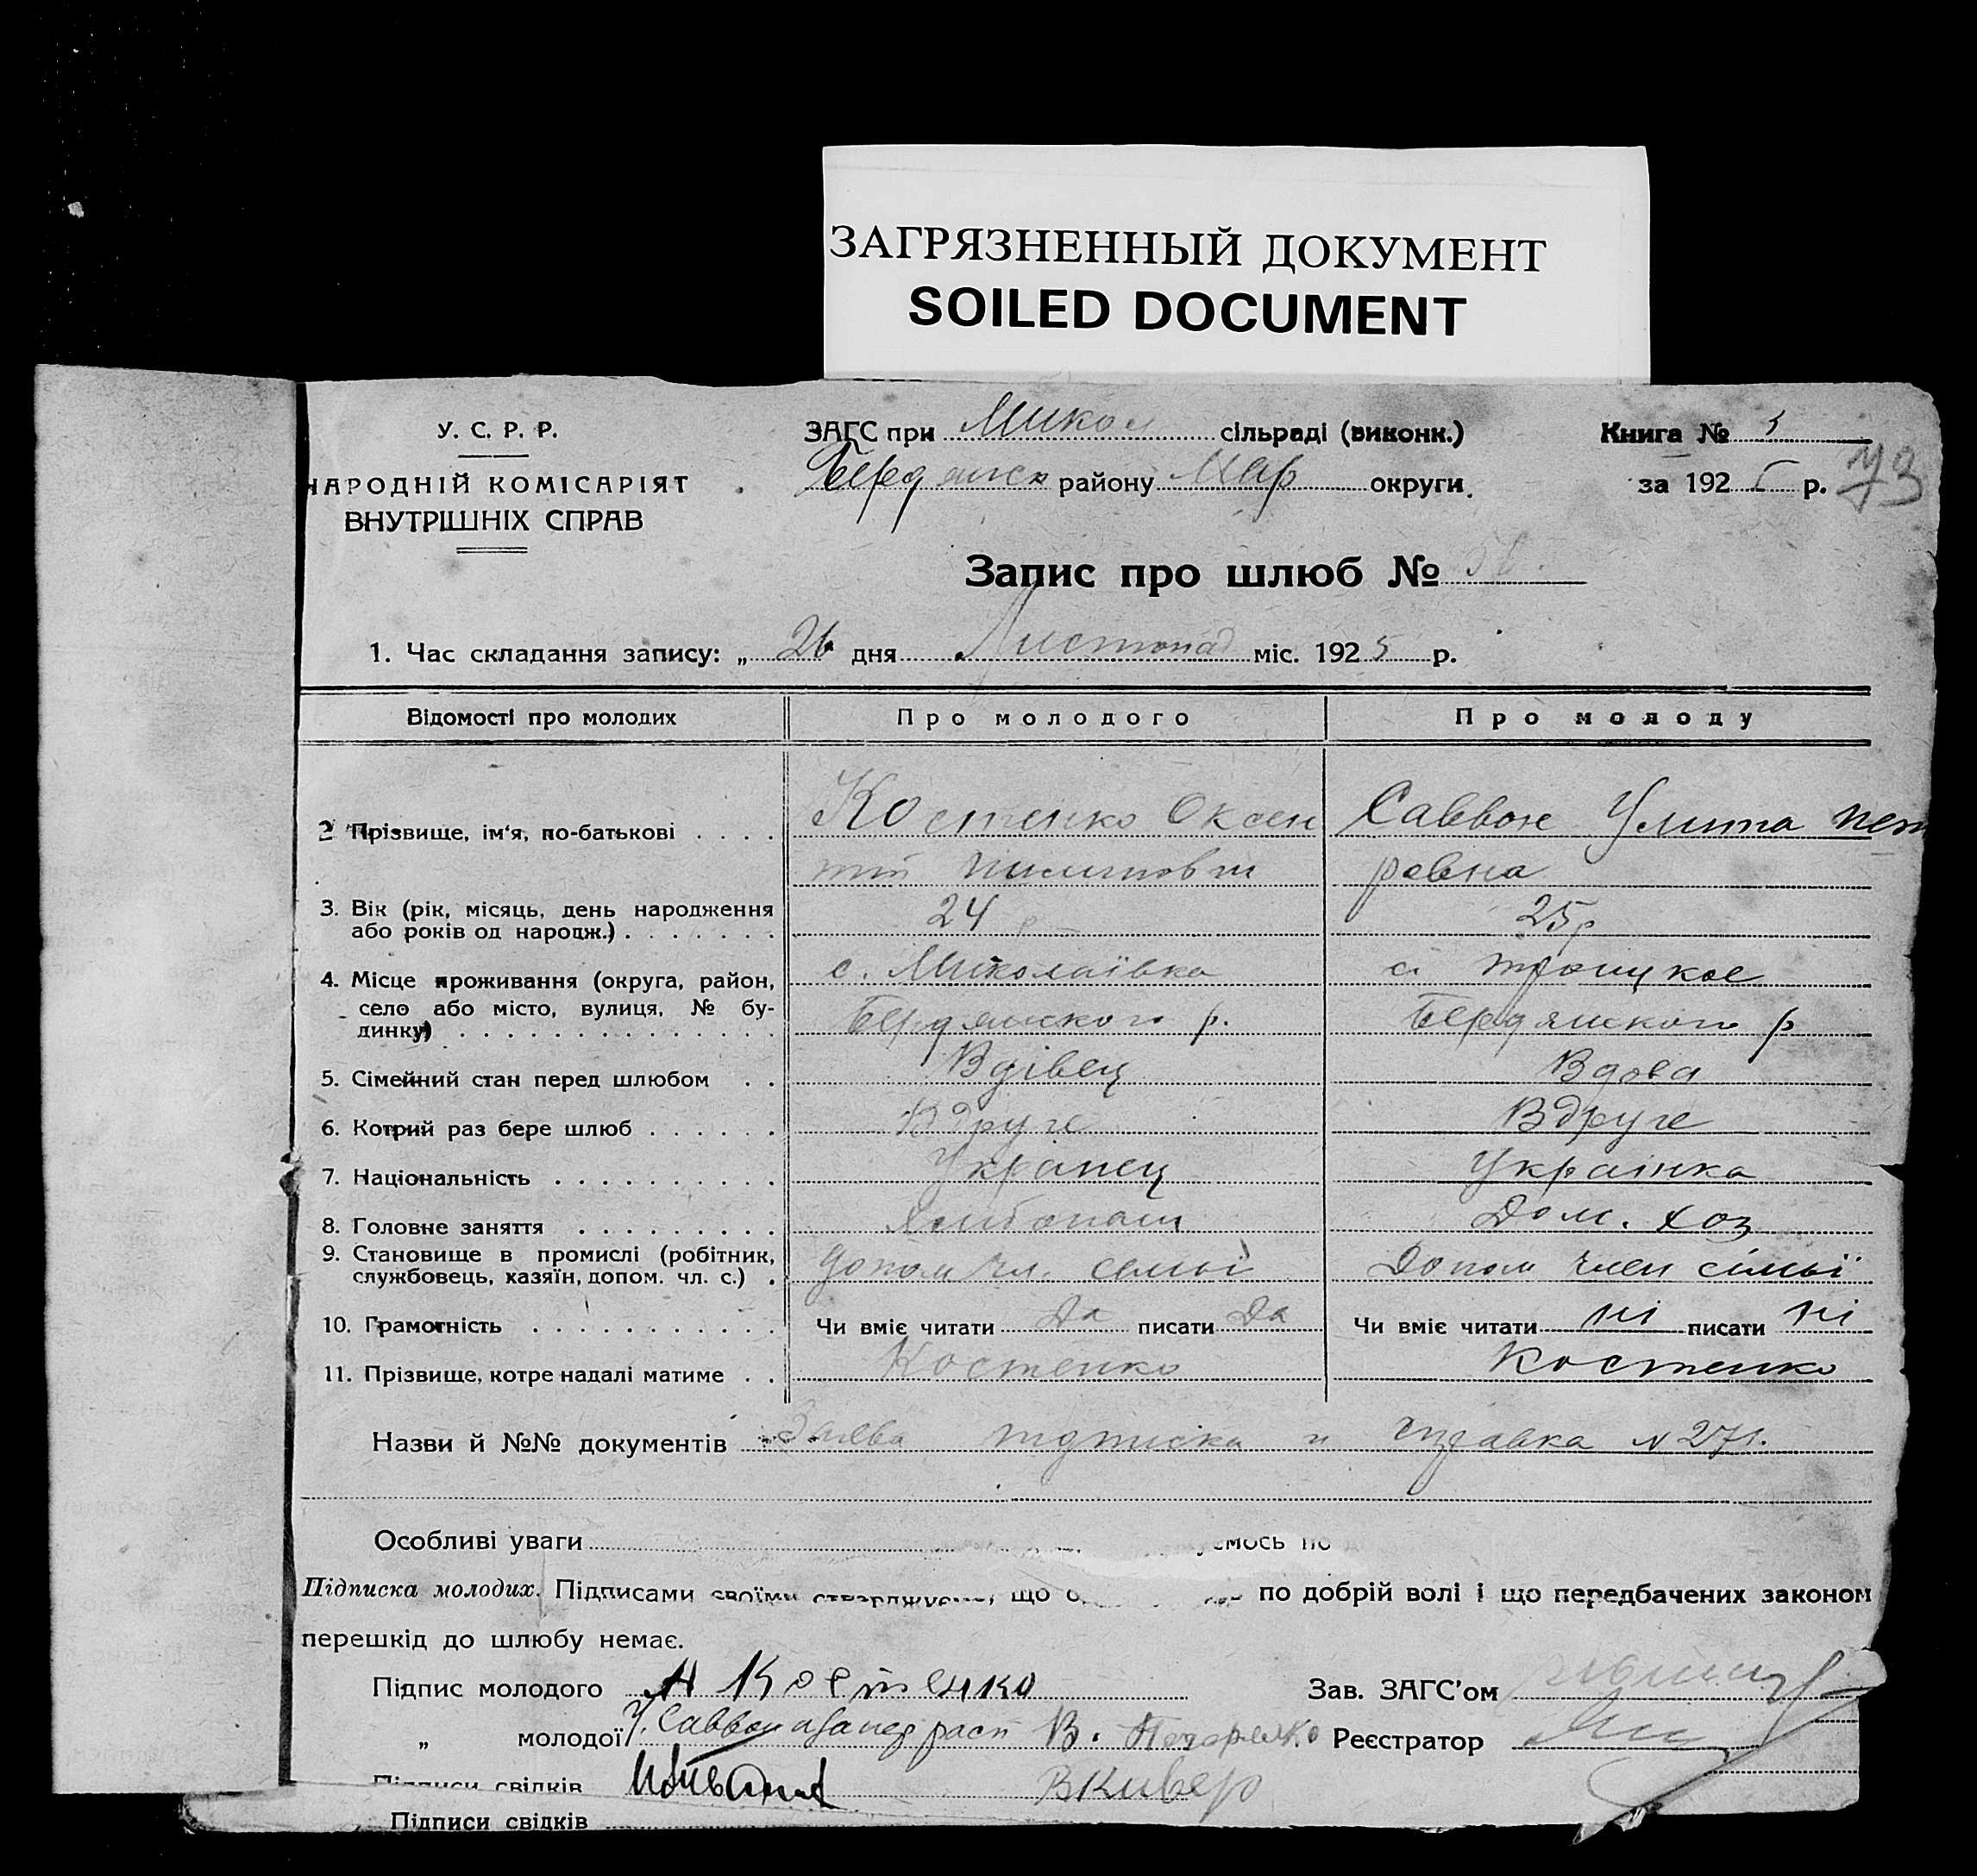 ЗАГРЯЗНЕННЫЙ ДОКУМЕНТ
SOILED DOCUMENT
У. С. Р. Р.
НАРОДНІЙ КОМІСАРІЯТ
ВНУТРІШНІХ СПРАВ
ЗАГС при Микол сільраді (виконк.)
Бердянск району Мар округи.
Книга №
за 1925 р.
73
Запис про шлюб №
1. Час складання запису: „ 26 дня Листопад міс. 1925 р.
Відомості про молодих Про молодого Про молоду
2 Прізвище, ім'я, по-батькові . . . . Костенко Оксен Саввон Улита Пет
тій Пилипович ровна
3. Вік (рік, місяць, день народження 24 р 25 р
або років од народж.) . . . . . . .
4. Місце проживання (округа, район, с. Миколаївка с. Троицкое
село або місто, вулиця, № бу-
динку) . . . . . . . . . . . . . Бердянского р. Бердянского р
5. Сімейний стан перед шлюбом . . Вдівець Вдова
6. Котрий раз бере шлюб . . . . . . Вдруге Вдруге
7. Національність . . . . . . . . . . Украінец Украінка
8. Головне заняття . . . . . . . . . Дом. хоз
9. Становище в промислі (робітник, допом чл. семьі Допом член сімьї
службовець, хазяїн, допом. чл. с.) .
10. Грамотність . . . . . . . . . . . Чи вміє читати Да писати Да Чи вміє читати ні писати ні
11. Прізвище, котре надалі матиме . . Костенко Костенко
Назви й №№ документів Заява підписка и справка № 271.
Особливі уваги
Підписка молодих. Підписами своїми стверджуємо, що по добрій волі і що передбачених законом
перешкід до шлюбу немає.
Підпис молодого Костенко Зав. ЗАГС'ом
„ молодої У. Саввон В. Реєстратор
Підписи свідків
Підписи свідків